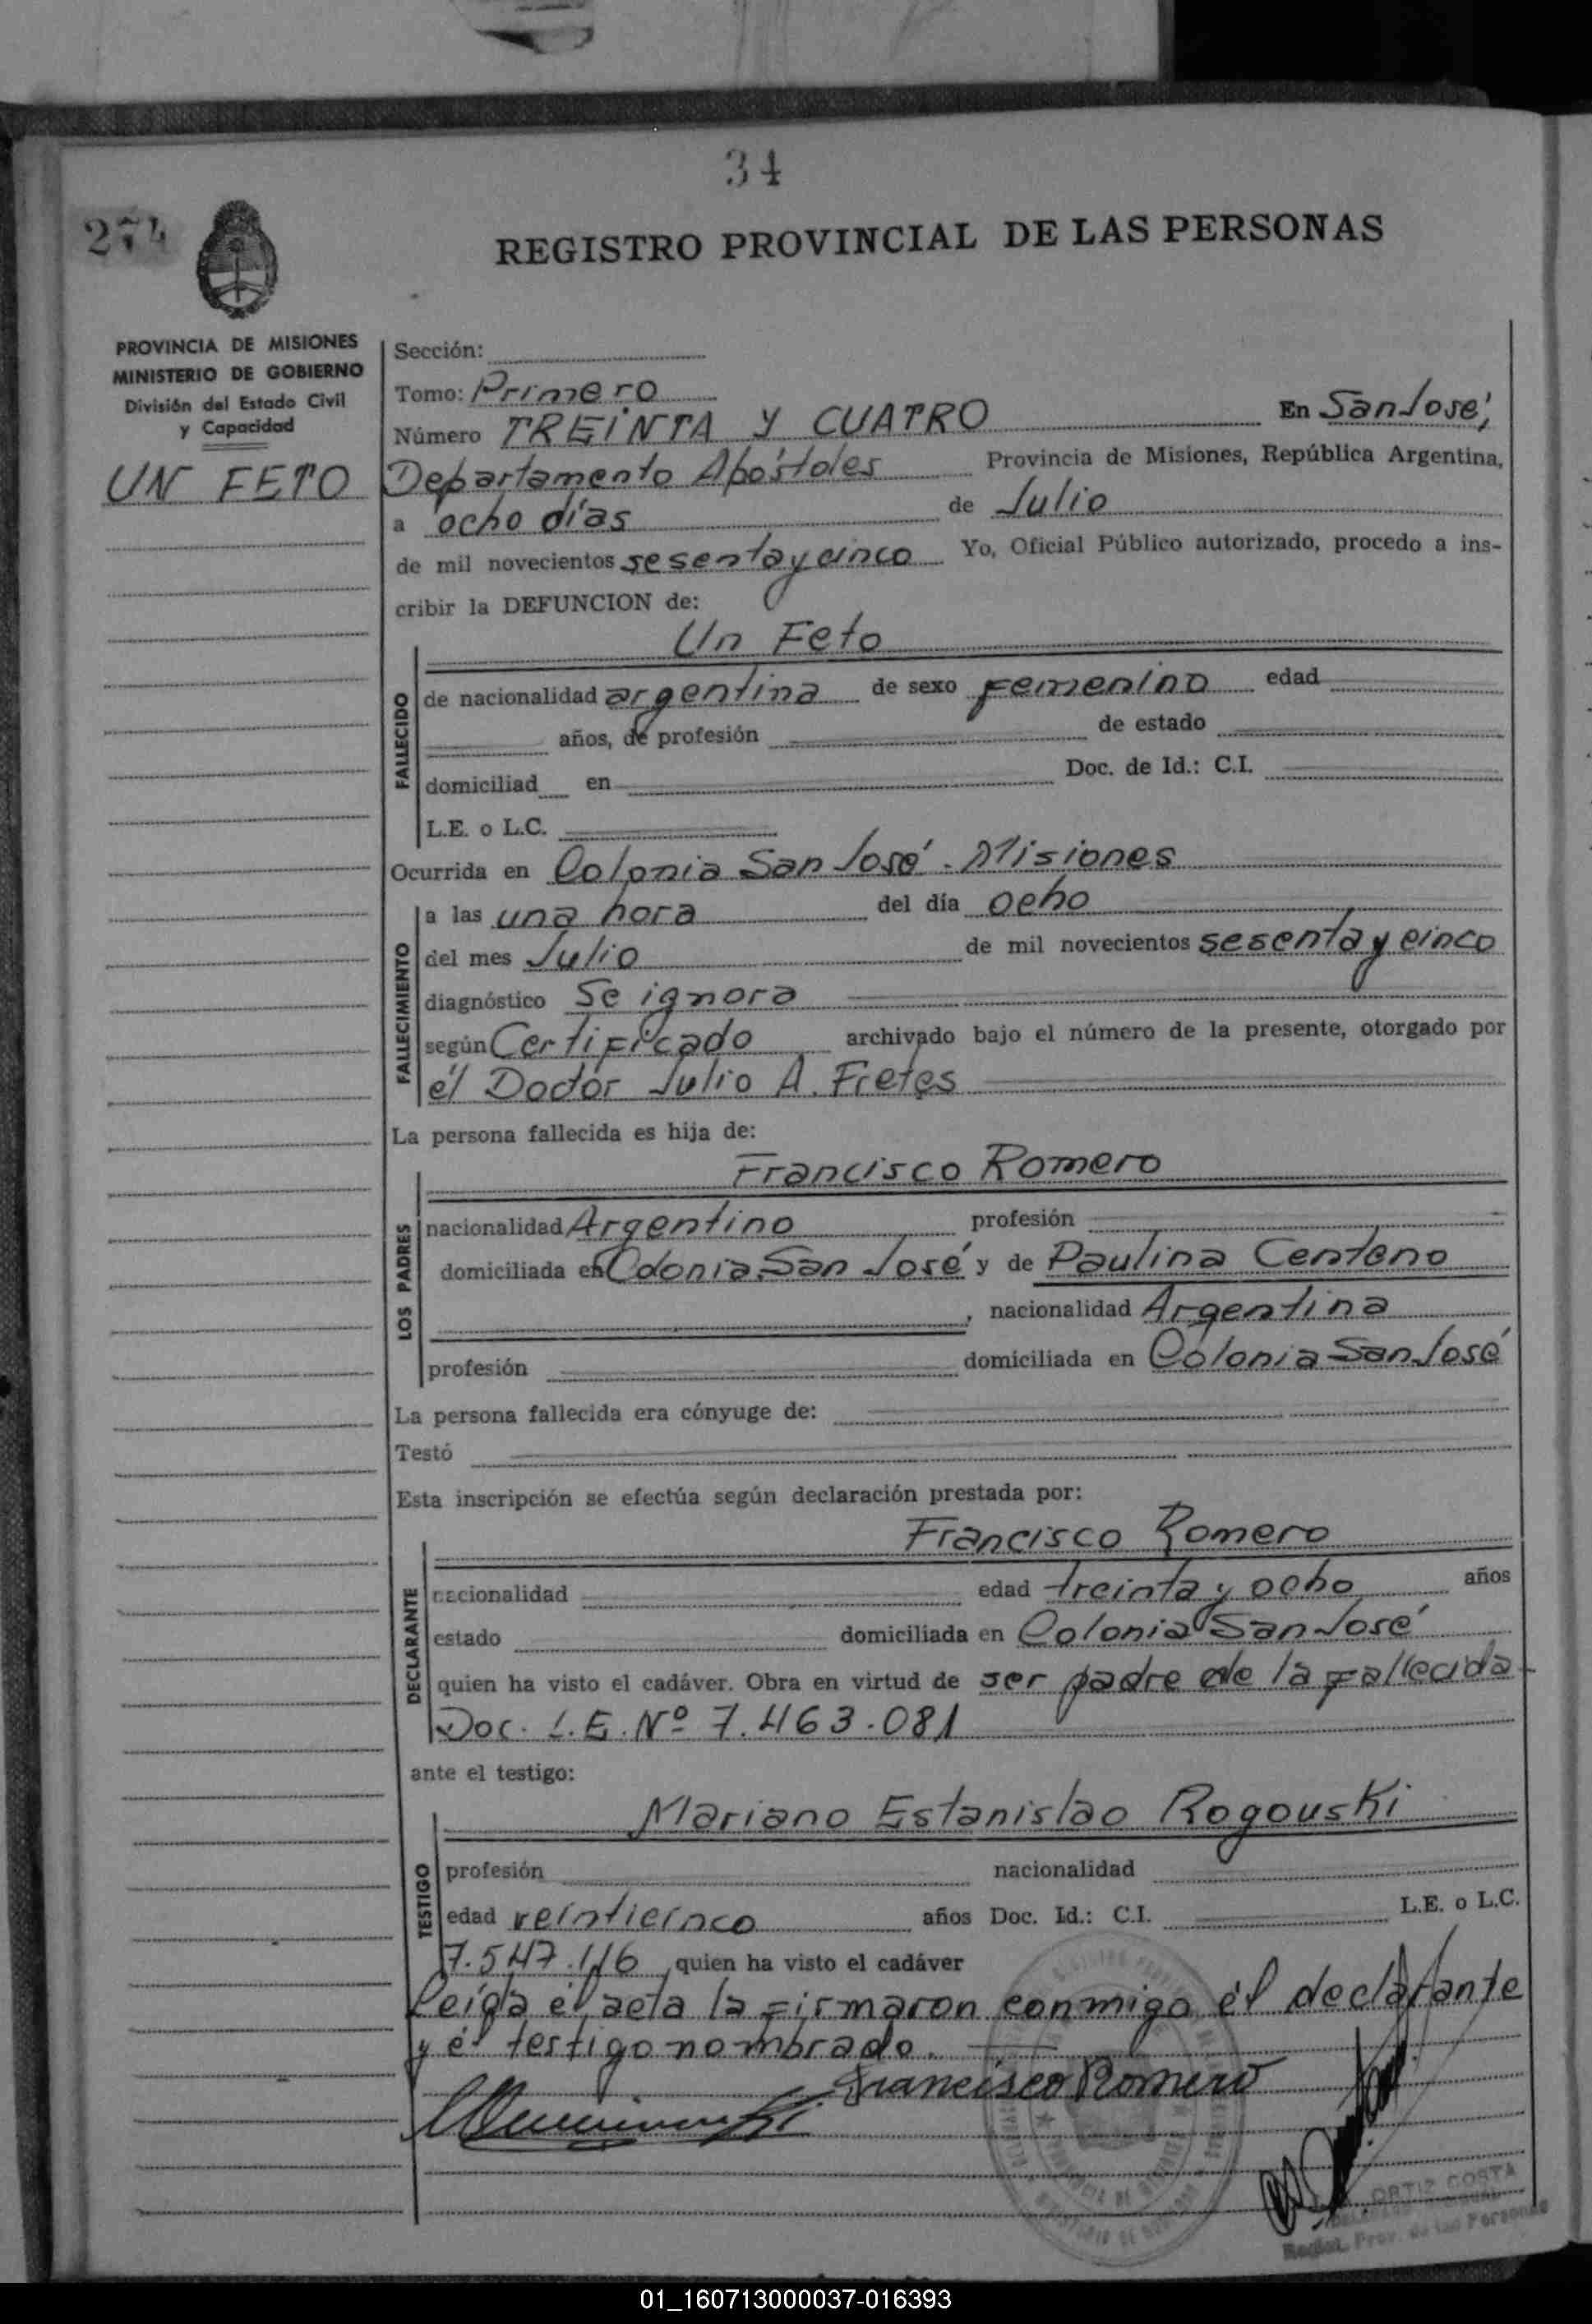 34
274
REGISTRO PROVINCIAL DE LAS PERSONAS
PROVINCIA DE MISIONES
MINISTERIO DE GOBIERNO
División del Estado Civil
y Capacidad
UN FETO
Sección:
Tomo: Primero
Número TREINTA Y CUATRO En San José,
Departamento Apóstoles Provincia de Misiones, República Argentina,
a ocho días de Julio
de mil novecientos sesenta y cinco Yo, Oficial Público autorizado, procedo a ins-
cribir la DEFUNCION de:
Un Feto
FALLECIDO
de nacionalidad argentina de sexo femenino edad
años, de profesión de estado
domiciliad en Doc. de Id.: C.I.
L.E. o L.C.
Ocurrida en Colonia San José - Misiones
FALLECIMIENTO
a las una hora del día ocho
del mes Julio de mil novecientos sesenta y cinco
diagnóstico Se ignora
según Certificado archivado bajo el número de la presente, otorgado por
él Doctor Julio A. Fretes
La persona fallecida es hija de:
Francisco Romero
LOS PADRES
nacionalidad Argentino profesión
domiciliada en Colonia San José y de Paulina Centeno
, nacionalidad Argentina
profesión domiciliada en Colonia San José
La persona fallecida era cónyuge de:
Testó
Esta inscripción se efectúa según declaración prestada por:
Francisco Romero
DECLARANTE
nacionalidad edad treinta y ocho años
estado domiciliada en Colonia San José
quien ha visto el cadáver. Obra en virtud de ser padre de la fallecida-
Doc. L.E. Nº 7.463.081
ante el testigo:
Mariano Estanislao Rogouski
TESTIGO
profesión nacionalidad
edad veinticinco años Doc. Id.: C.I. L.E. o L.C.
7.547.116 quien ha visto el cadáver
Leída él acta la firmaron conmigo él declarante
y él testigo nombrado.
Francisco Romero
ORTIZ COSTA
Regist. Prov. de las Personas
01_160713000037-016393